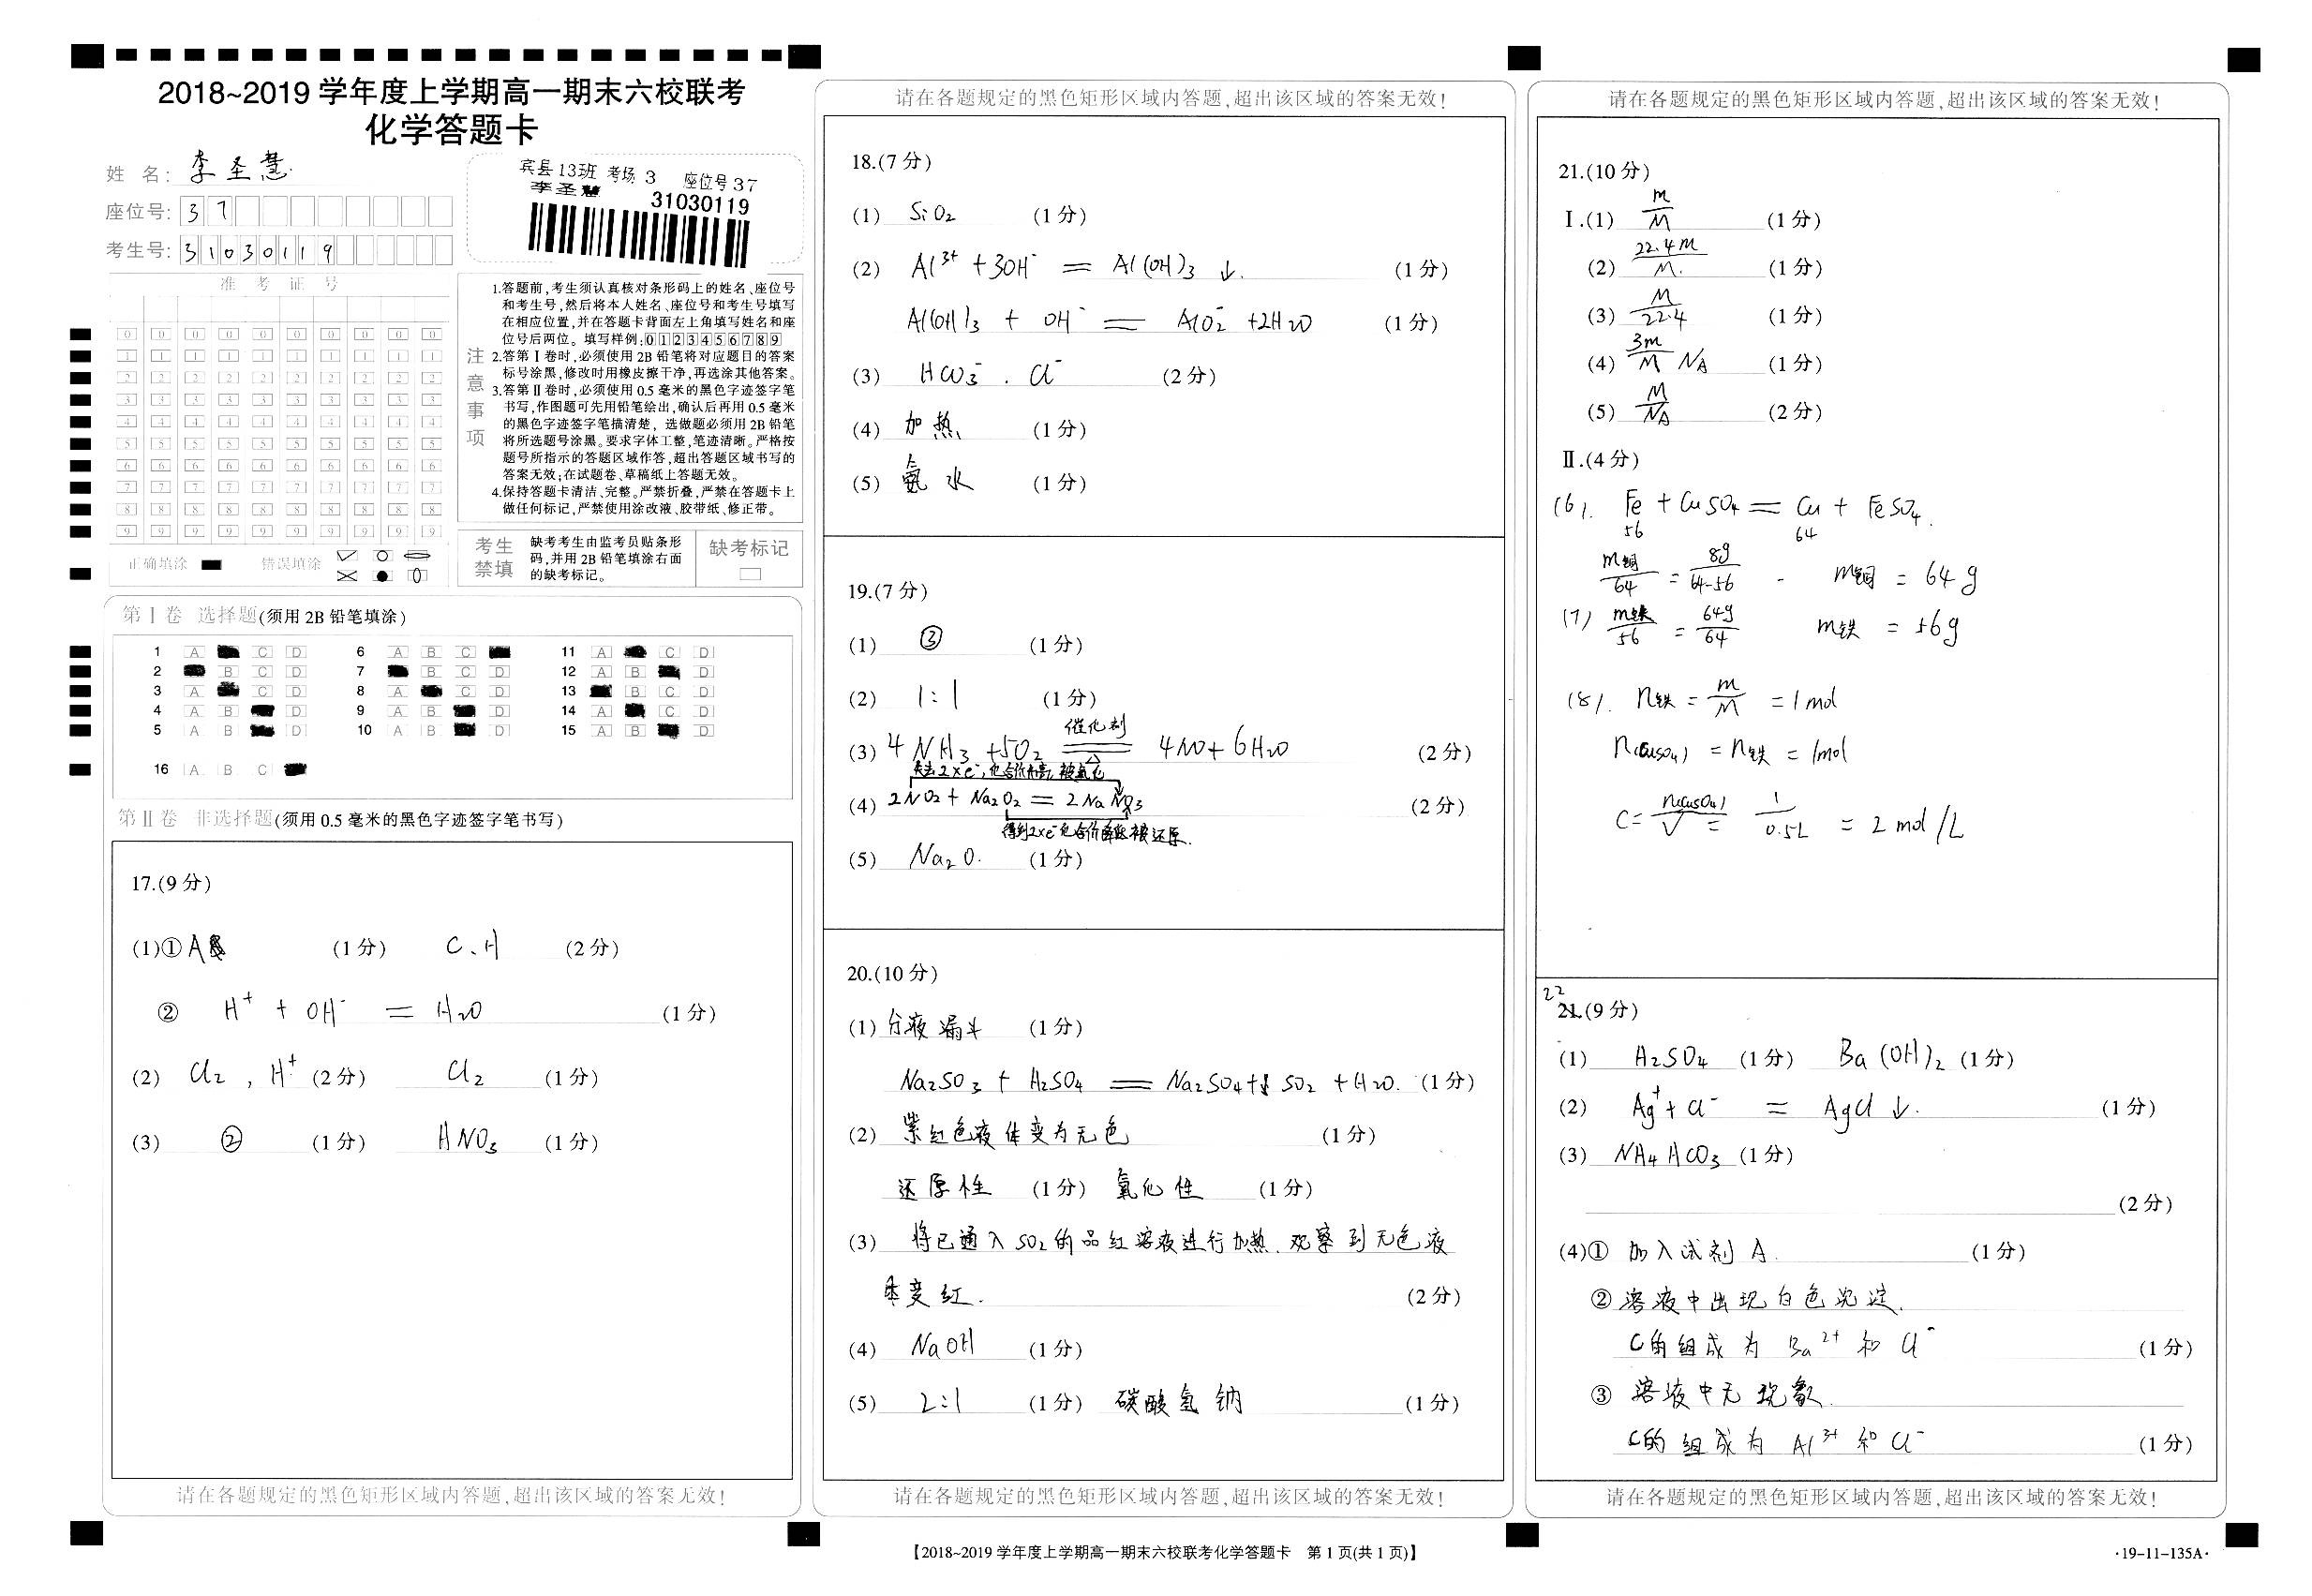 2018~2019 学年度上学期高一期末六校联考
化学答题卡
姓 名: 李圣慧
座位号: 3 7
考生号: 3 1 0 3 0 1 1 9
宾县 13班 考场 3 座位号 37
李圣慧
31030119
准 考 证 号
0 0 0 0 0 0 0 0 0 0
1 1 1 1 1 1 1 1 1 1
2 2 2 2 2 2 2 2 2 2
3 3 3 3 3 3 3 3 3 3
4 4 4 4 4 4 4 4 4 4
5 5 5 5 5 5 5 5 5 5
6 6 6 6 6 6 6 6 6 6
7 7 7 7 7 7 7 7 7 7
8 8 8 8 8 8 8 8 8 8
9 9 9 9 9 9 9 9 9 9
正确填涂 错误填涂
注意事项
1.答题前,考生须认真核对条形码上的姓名、座位号
和考生号,然后将本人姓名、座位号和考生号填写
在相应位置,并在答题卡背面左上角填写姓名和座
位号后两位。填写样例:0 1 2 3 4 5 6 7 8 9
2.答第Ⅰ卷时,必须使用2B铅笔将对应题目的答案
标号涂黑,修改时用橡皮擦干净,再选涂其他答案。
3.答第Ⅱ卷时,必须使用0.5毫米的黑色字迹签字笔
书写,作图题可先用铅笔绘出,确认后再用0.5毫米
的黑色字迹签字笔描清楚, 选做题必须用2B铅笔
将所选题号涂黑。要求字体工整,笔迹清晰。严格按
题号所指示的答题区域作答,超出答题区域书写的
答案无效;在试题卷、草稿纸上答题无效。
4.保持答题卡清洁、完整。严禁折叠,严禁在答题卡上
做任何标记,严禁使用涂改液、胶带纸、修正带。
考生禁填
缺考考生由监考员贴条形
码,并用2B铅笔填涂右面
的缺考标记。
缺考标记
第Ⅰ卷 选择题(须用2B铅笔填涂)
1 A C D 6 A B C 11 A C D
2 B C D 7 B C D 12 A B D
3 A C D 8 A C D 13 B C D
4 A B D 9 A B D 14 A C D
5 A B D 10 A B D 15 A B D
16 A B C
第Ⅱ卷 非选择题(须用0.5毫米的黑色字迹签字笔书写)
17.(9分)
(1)① A (1分) C、H (2分)
② H⁺ + OH⁻ = H₂O (1分)
(2) Cl₂ , H⁺ (2分) Cl₂ (1分)
(3) ② (1分) HNO₃ (1分)
请在各题规定的黑色矩形区域内答题,超出该区域的答案无效!
请在各题规定的黑色矩形区域内答题,超出该区域的答案无效!
18.(7分)
(1) SiO₂ (1分)
(2) Al³⁺ + 3OH⁻ = Al(OH)₃ ↓. (1分)
Al(OH)₃ + OH⁻ = AlO₂⁻ + 2H₂O (1分)
(3) HCO₃⁻ . Cl⁻ (2分)
(4) 加热 (1分)
(5) 氨水 (1分)
19.(7分)
(1) ③ (1分)
(2) 1:1 (1分)
催化剂
(3) 4NH₃ + 5O₂ = 4NO + 6H₂O (2分)
△
失去2×e⁻,化合价升高,被氧化
(4) 2NO₂ + Na₂O₂ = 2NaNO₃ (2分)
得到2×e⁻化合价降低被还原.
(5) Na₂O. (1分)
20.(10分)
(1) 分液漏斗 (1分)
Na₂SO₃ + H₂SO₄ = Na₂SO₄ + SO₂ + H₂O. (1分)
(2) 紫红色液体变为无色 (1分)
还原性 (1分) 氧化性 (1分)
(3) 将已通入SO₂的品红溶液进行加热.观察到无色液
体变红. (2分)
(4) NaOH (1分)
(5) 2:1 (1分) 碳酸氢钠 (1分)
请在各题规定的黑色矩形区域内答题,超出该区域的答案无效!
请在各题规定的黑色矩形区域内答题,超出该区域的答案无效!
21.(10分)
Ⅰ.(1) m/M (1分)
(2) 22.4m/M. (1分)
(3) M/22.4 (1分)
(4) 3m/M NA (1分)
(5) M/NA (2分)
Ⅱ.(4分)
(6). Fe + CuSO₄ = Cu + FeSO₄.
56 64
m铜/64 = 8g/64-56 . m铜 = 64g
(7) m铁/56 = 64g/64 m铁 = 56g
(8). n铁 = m/M = 1mol
n(CuSO₄) = n铁 = 1mol
C = n(CuSO₄)/V = 1/0.5L = 2mol/L
22
21.(9分)
(1) H₂SO₄ (1分) Ba(OH)₂ (1分)
(2) Ag⁺ + Cl⁻ = AgCl ↓. (1分)
(3) NH₄HCO₃ (1分)
(2分)
(4)① 加入试剂A. (1分)
② 溶液中出现白色沉淀.
C的组成为 Ba²⁺ 和 Cl⁻ (1分)
③ 溶液中无现象.
C的组成为 Al³⁺ 和 Cl⁻ (1分)
请在各题规定的黑色矩形区域内答题,超出该区域的答案无效!
【2018~2019学年度上学期高一期末六校联考化学答题卡 第1页(共1页)】
·19-11-135A·